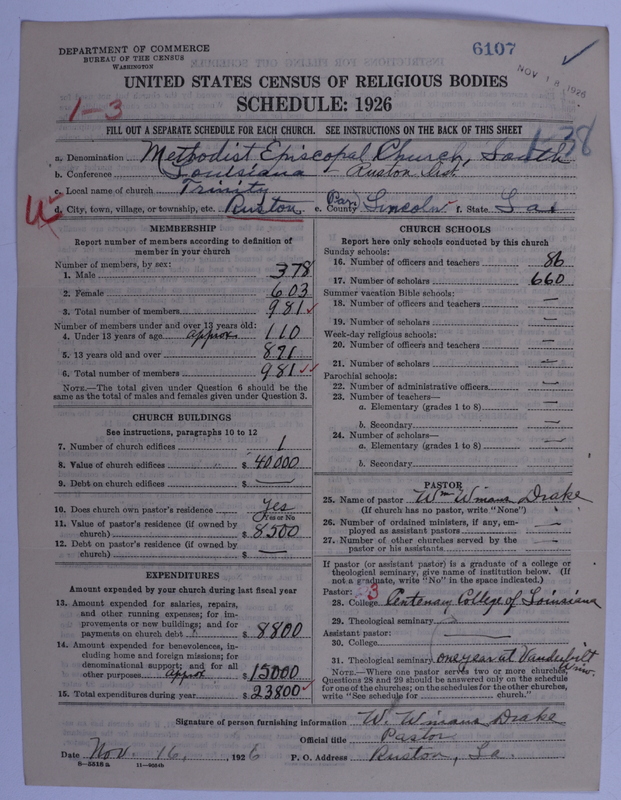 DEPARTMENT OF COMMERCE
BUREAU OF THE CENSUS
WASHINGTON
6107
NOV 18 1926
UNITED STATES CENSUS OF RELIGIOUS BODIES
SCHEDULE: 1926
1-3
FILL OUT A SEPARATE SCHEDULE FOR EACH CHURCH. SEE INSTRUCTIONS ON THE BACK OF THIS SHEET
38
a. Denomination Methodist Episcopal Church, South
b. Conference Louisiana - Ruston Dist.
c. Local name of church Trinity
d. City, town, village, or township, etc. Ruston e. County (Par) Lincoln f. State La
MEMBERSHIP
Report number of members according to definition of member in your church
Number of members, by sex:
1. Male 378
2. Female 603
3. Total number of members 981
Number of members under and over 13 years old:
4. Under 13 years of age approx 110
5. 13 years old and over 871
6. Total number of members 981
NOTE.—The total given under Question 6 should be the same as the total of males and females given under Question 3.
CHURCH BUILDINGS
See instructions, paragraphs 10 to 12
7. Number of church edifices 1
8. Value of church edifices $ 40000
9. Debt on church edifices $ —
10. Does church own pastor's residence Yes
(Yes or No)
11. Value of pastor's residence (if owned by church) $ 8500
12. Debt on pastor's residence (if owned by church) $ —
EXPENDITURES
Amount expended by your church during last fiscal year
13. Amount expended for salaries, repairs, and other running expenses; for improvements or new buildings; and for payments on church debt $ 8800
14. Amount expended for benevolences, including home and foreign missions; for denominational support; and for all other purposes Approx $ 15000
15. Total expenditures during year $ 23800
CHURCH SCHOOLS
Report here only schools conducted by this church
Sunday schools:
16. Number of officers and teachers 86
17. Number of scholars 660
Summer vacation Bible schools:
18. Number of officers and teachers —
19. Number of scholars —
Week-day religious schools:
20. Number of officers and teachers —
21. Number of scholars —
Parochial schools:
22. Number of administrative officers —
23. Number of teachers—
a. Elementary (grades 1 to 8) —
b. Secondary —
24. Number of scholars—
a. Elementary (grades 1 to 8) —
b. Secondary —
PASTOR
25. Name of pastor Wm Winans Drake
(If church has no pastor, write "None")
26. Number of ordained ministers, if any, employed as assistant pastors —
27. Number of other churches served by the pastor or his assistants —
If pastor (or assistant pastor) is a graduate of a college or theological seminary, give name of institution below. (If not a graduate, write "No" in the space indicated.)
Pastor: 3
28. College Centenary College of Louisiana
29. Theological seminary
Assistant pastor:
30. College —
31. Theological seminary one year at Vanderbilt Univ.
NOTE.—Where one pastor serves two or more churches, Questions 28 and 29 should be answered only on the schedule for one of the churches; on the schedules for the other churches, write "See schedule for church."
Signature of person furnishing information W. Winans Drake
Official title Pastor
Date Nov. 16, , 1926 P. O. Address Ruston, La.
8—5518a 11—9064b